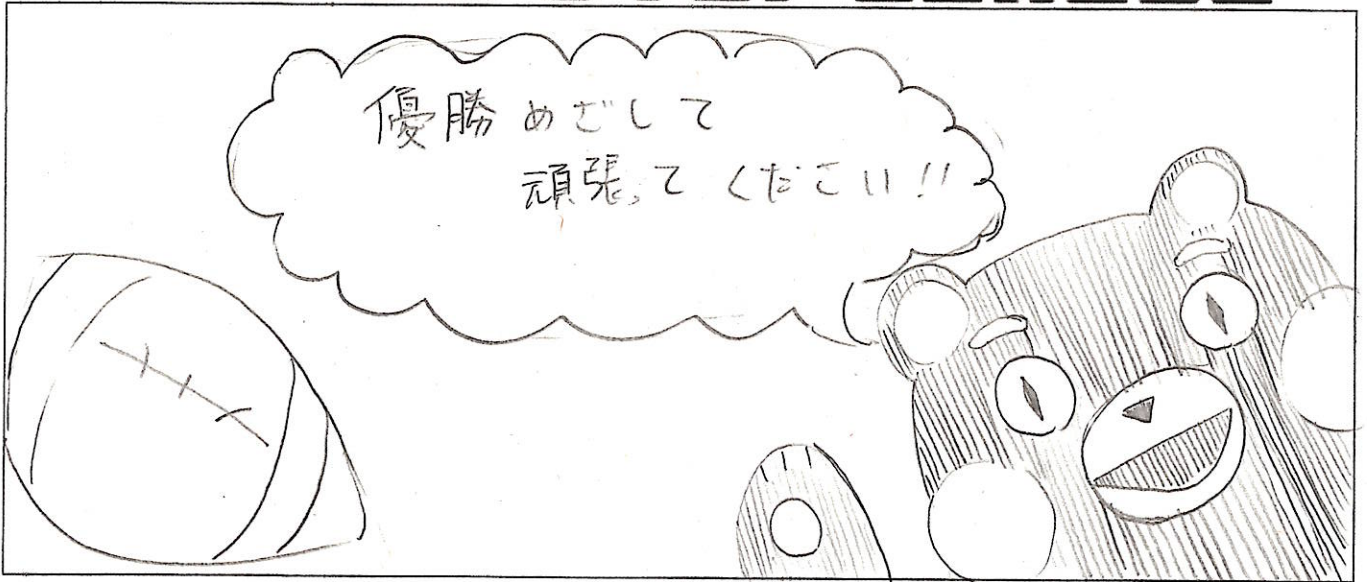 優勝めざして
頑張ってください!!